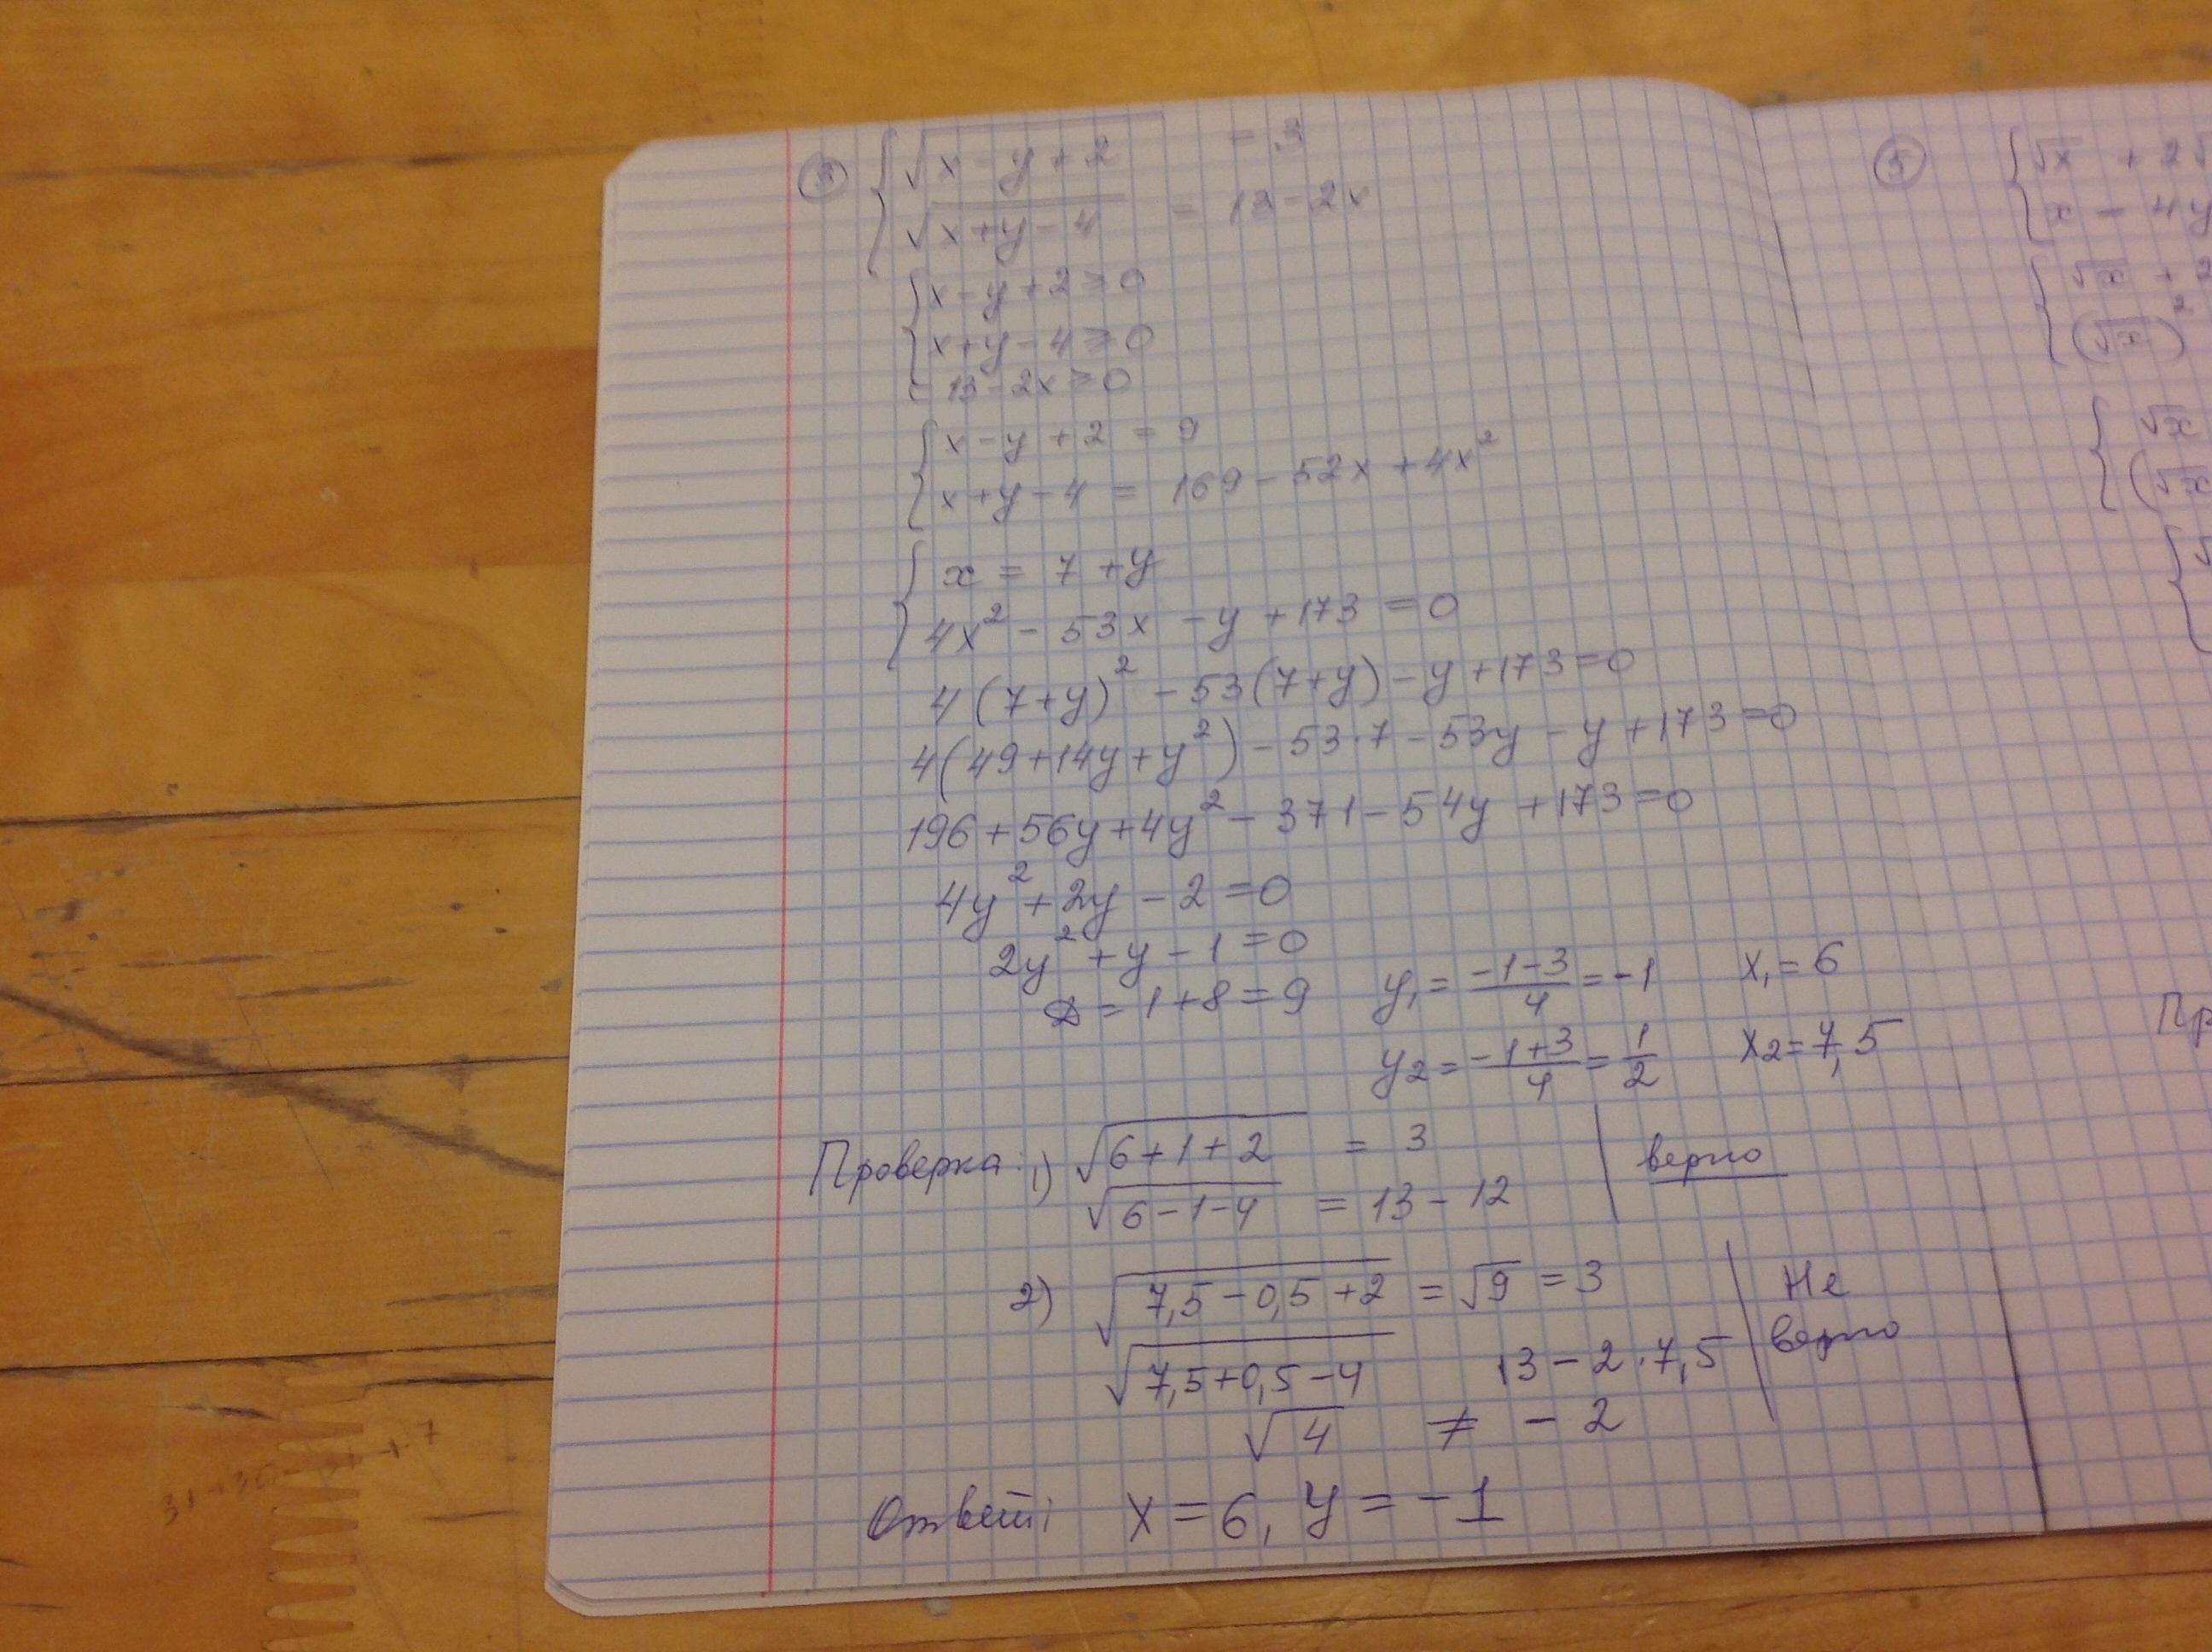 ③ { √(x - y + 2) = 3
√(x + y - 4) = 13 - 2x
{ x - y + 2 ≥ 0
x + y - 4 ≥ 0
13 - 2x ≥ 0
{ x - y + 2 = 9
x + y - 4 = 169 - 52x + 4x²
{ x = 7 + y
4x² - 53x - y + 173 = 0
4(7+y)² - 53(7+y) - y + 173 = 0
4(49+14y+y²) - 53·7 - 53y - y + 173 = 0
196 + 56y + 4y² - 371 - 54y + 173 = 0
4y² + 2y - 2 = 0
2y² + y - 1 = 0
D = 1 + 8 = 9 y₁ = (-1-3)/4 = -1 x₁ = 6
y₂ = (-1+3)/4 = 1/2 x₂ = 7,5
Проверка: 1) √(6+1+2) = 3 | верно
√(6-1-4) = 13 - 12
2) √(7,5-0,5+2) = √9 = 3 | Не
√(7,5+0,5-4) 13 - 2·7,5 верно
√4 ≠ -2
Ответ: x = 6, y = -1
⑤ { √x + 2
x - 4y
{ √x + 2
(√x)²
{ √x
(√x
{ √
Пр